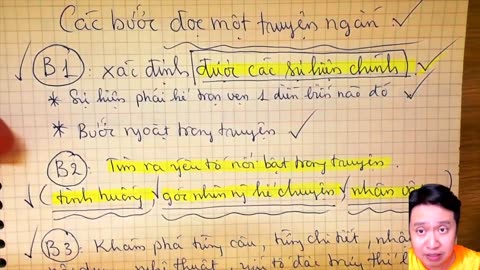 Các bước đọc một truyện ngắn
B1: xác định được các sự kiện chính
* Sự kiện phải kể trọn vẹn 1 diễn biến nào đó
* Bước ngoặt trong truyện
B2: Tìm ra yếu tố nổi bật trong truyện.
(tình huống, góc nhìn ng kể chuyện, nhân
B3: Khám phá từng câu, từng chi tiết, nhân
nghệ thuật, yếu tố